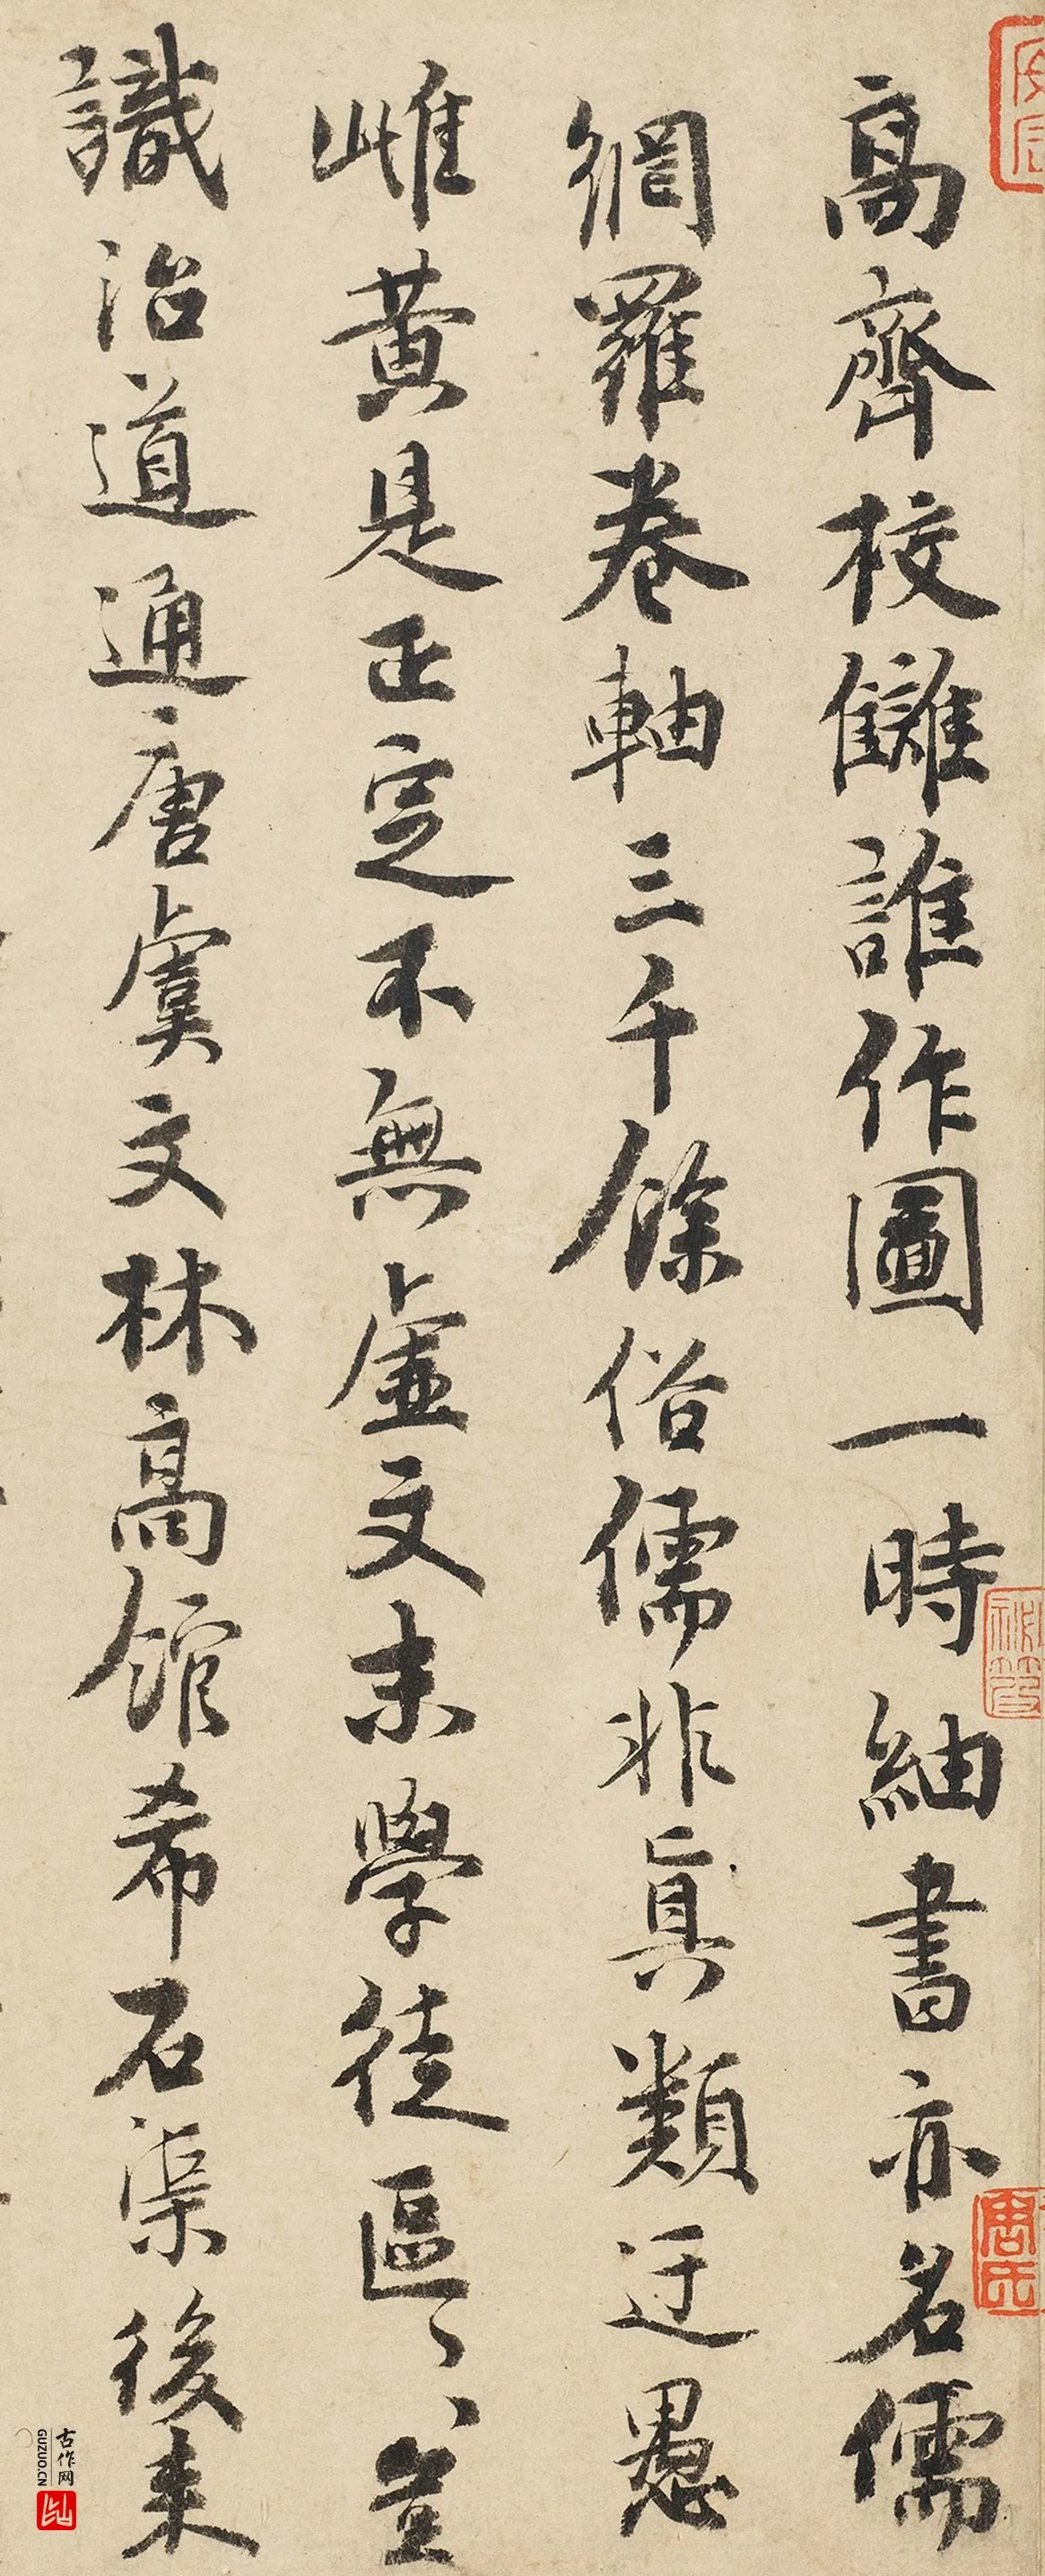 高齊校讎誰作圖一時紬書亦名儒
網羅卷軸三千餘俗儒非真類迂愚
雌黃是正定不無虛文末學徒區〻豈
識治道通唐虞文林高館希石渠後来
唐氏
古作网
GUZUO.CN